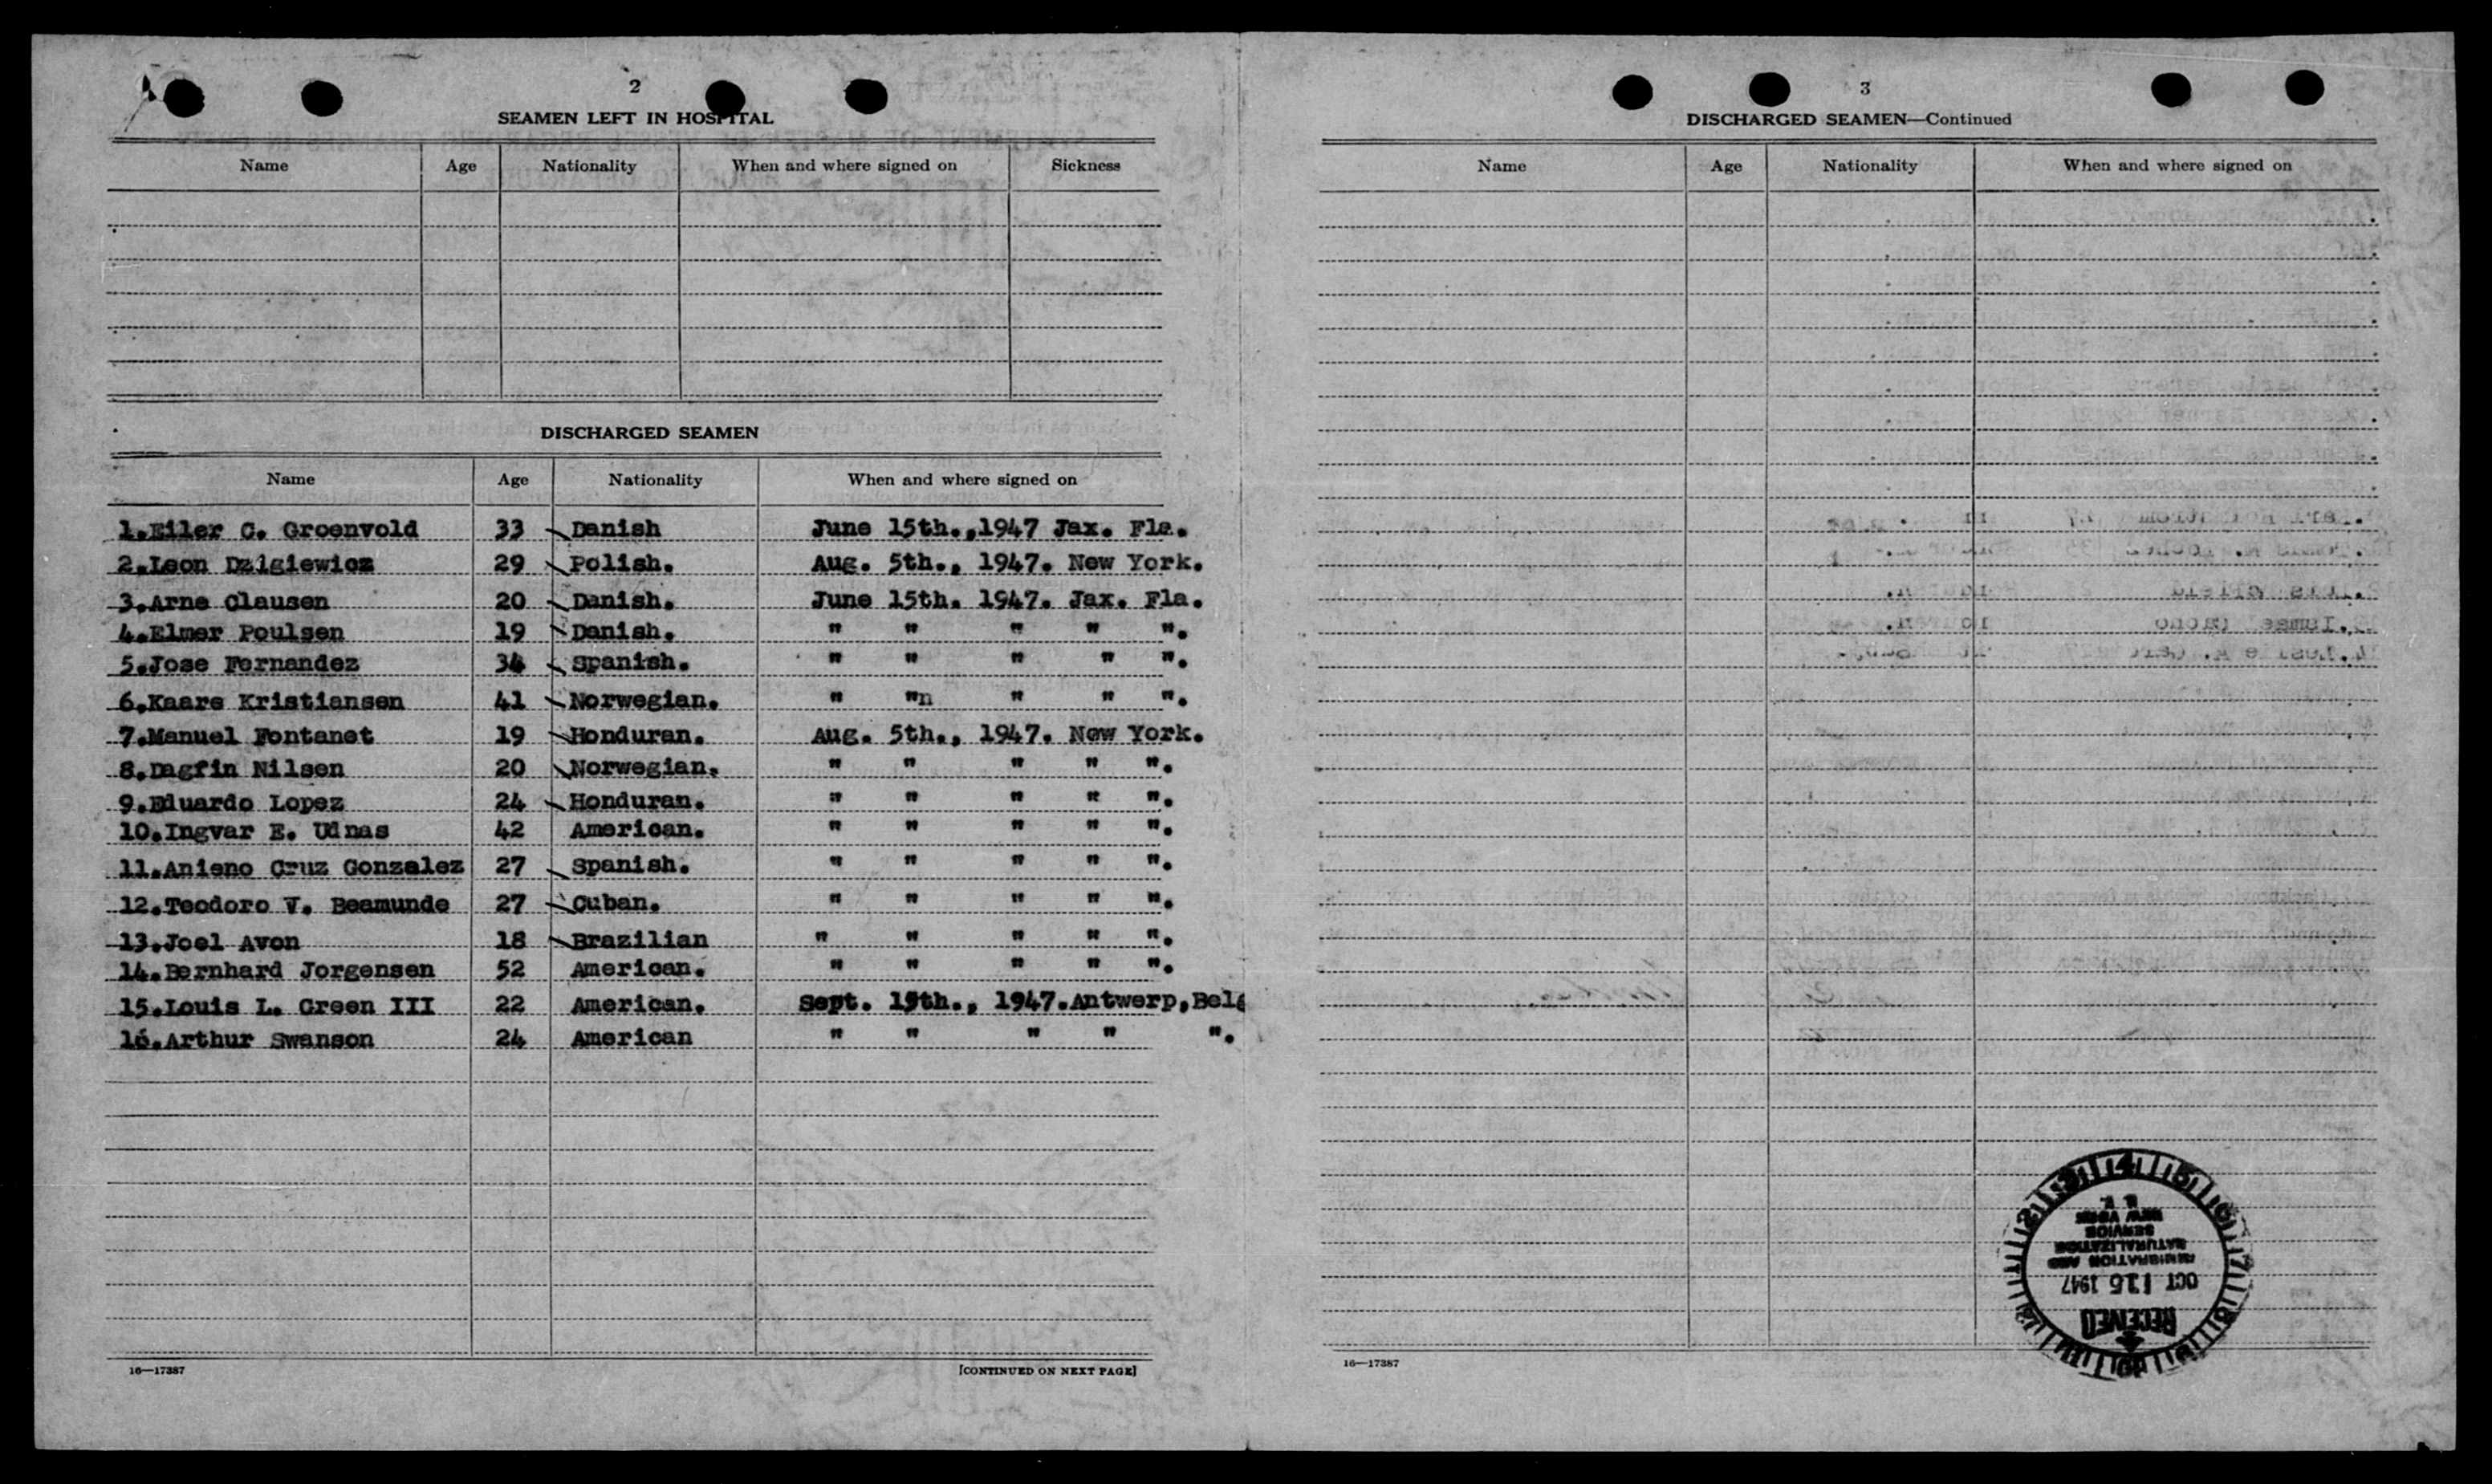 2
SEAMEN LEFT IN HOSPITAL
Name Age Nationality When and where signed on Sickness
DISCHARGED SEAMEN
Name Age Nationality When and where signed on
1.Eiler C. Groenvold 33 Danish June 15th.,1947 Jax. Fla.
2.Leon Dzigiewicz 29 Polish. Aug. 5th., 1947. New York.
3.Arne Clausen 20 Danish. June 15th. 1947. Jax. Fla.
4.Elmer Poulsen 19 Danish. " " " " ".
5.Jose Fernandez 34 Spanish. " " " " ".
6.Kaare Kristiansen 41 Norwegian. " "n " " ".
7.Manuel Fontanet 19 Honduran. Aug. 5th., 1947. New York.
8.Dagfin Nilsen 20 Norwegian. " " " " ".
9.Eduardo Lopez 24 Honduran. " " " " ".
10.Ingvar E. Udnas 42 American. " " " " ".
11.Anieno Cruz Gonzalez 27 Spanish. " " " " ".
12.Teodoro V. Beamunde 27 Cuban. " " " " ".
13.Joel Avon 18 Brazilian " " " " ".
14.Bernhard Jorgensen 52 American. " " " " ".
15.Louis L. Green III 22 American. Sept. 15th., 1947.Antwerp,Belg
16.Arthur Swanson 24 American " " " " ".
16—17387 [CONTINUED ON NEXT PAGE]
3
DISCHARGED SEAMEN—Continued
Name Age Nationality When and where signed on
RECEIVED
OCT 16 1947
IMMIGRATION AND
NATURALIZATION
SERVICE
NEW YORK
N. Y.
16—17387